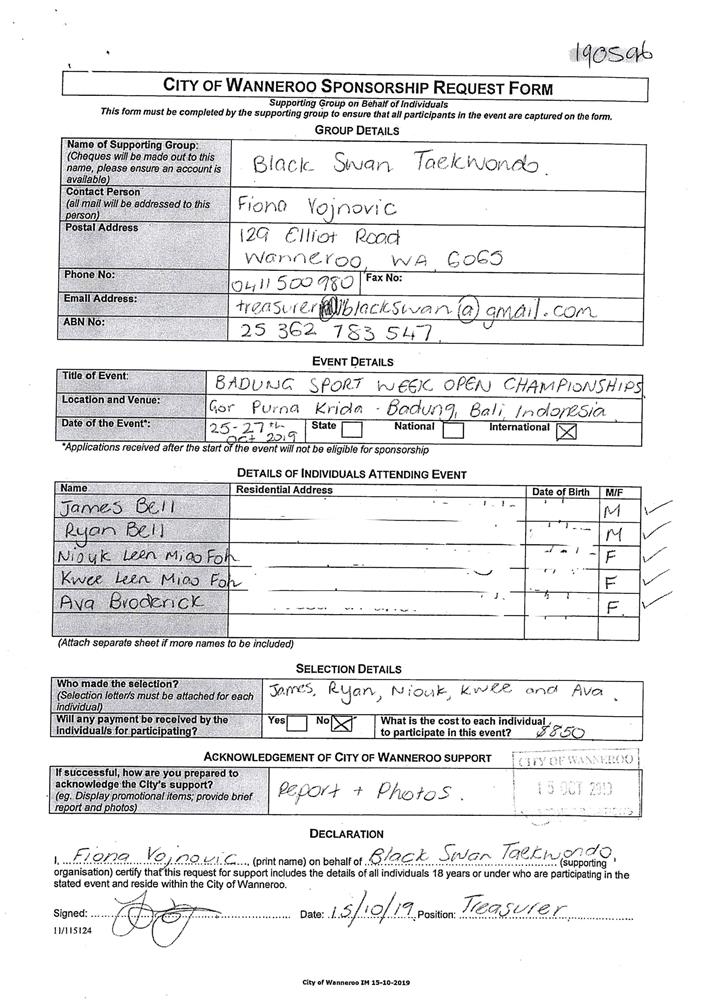 190596
CITY OF WANNEROO SPONSORSHIP REQUEST FORM
Supporting Group on Behalf of Individuals
This form must be completed by the supporting group to ensure that all participants in the event are captured on the form.
GROUP DETAILS
Name of Supporting Group:
(Cheques will be made out to this
name, please ensure an account is
available)
Black Swan Taekwondo.
Contact Person
(all mail will be addressed to this
person)
Fiona Vojnovic
Postal Address
129 Elliot Road
Wanneroo, WA 6065
Phone No:
0411 500 980
Fax No:
Email Address:
treasurer blackswan@gmail.com
ABN No:
25 362 783 547
EVENT DETAILS
Title of Event:
BADUNG SPORT WEEK OPEN CHAMPIONSHIPS
Location and Venue:
Gor Purna Krida - Badung, Bali, Indonesia
Date of the Event*:
25-27th
Oct 2019
State
National
International
*Applications received after the start of the event will not be eligible for sponsorship
DETAILS OF INDIVIDUALS ATTENDING EVENT
Name Residential Address Date of Birth M/F
James Bell M
Ryan Bell M
Niouk Leen Miao Foh F
Kwee Leen Miao Foh F
Ava Broderick F
(Attach separate sheet if more names to be included)
SELECTION DETAILS
Who made the selection?
(Selection letter/s must be attached for each
individual)
James, Ryan, Niouk, Kwee and Ava.
Will any payment be received by the
individual/s for participating?
Yes No
What is the cost to each individual
to participate in this event? $850
ACKNOWLEDGEMENT OF CITY OF WANNEROO SUPPORT
CITY OF WANNEROO
If successful, how are you prepared to
acknowledge the City's support?
(eg. Display promotional items; provide brief
report and photos)
Report + Photos.
15 OCT 2019
DECLARATION
I, Fiona Vojnovic, (print name) on behalf of Black Swan Taekwondo (supporting
organisation) certify that this request for support includes the details of all individuals 18 years or under who are participating in the
stated event and reside within the City of Wanneroo.
Signed: Date: 15/10/19 Position: Treasurer
11/115124
City of Wanneroo IM 15-10-2019